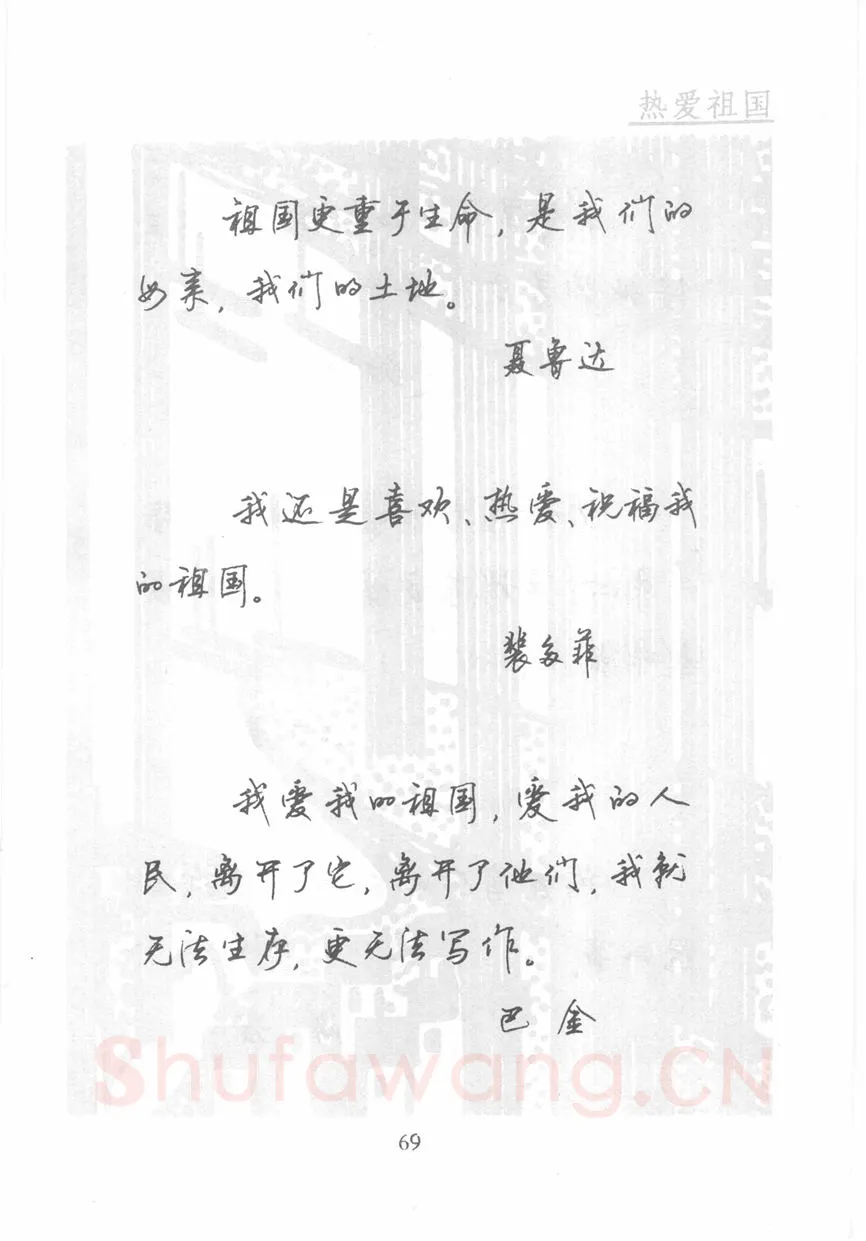 热爱祖国
祖国更重于生命，是我们的
母亲，我们的土地。
聂鲁达
我还是喜欢、热爱、祝福我
的祖国。
裴多菲
我爱我的祖国，爱我的人
民，离开了它，离开了他们，我就
无法生存，更无法写作。
巴金
Shufawang.CN
69